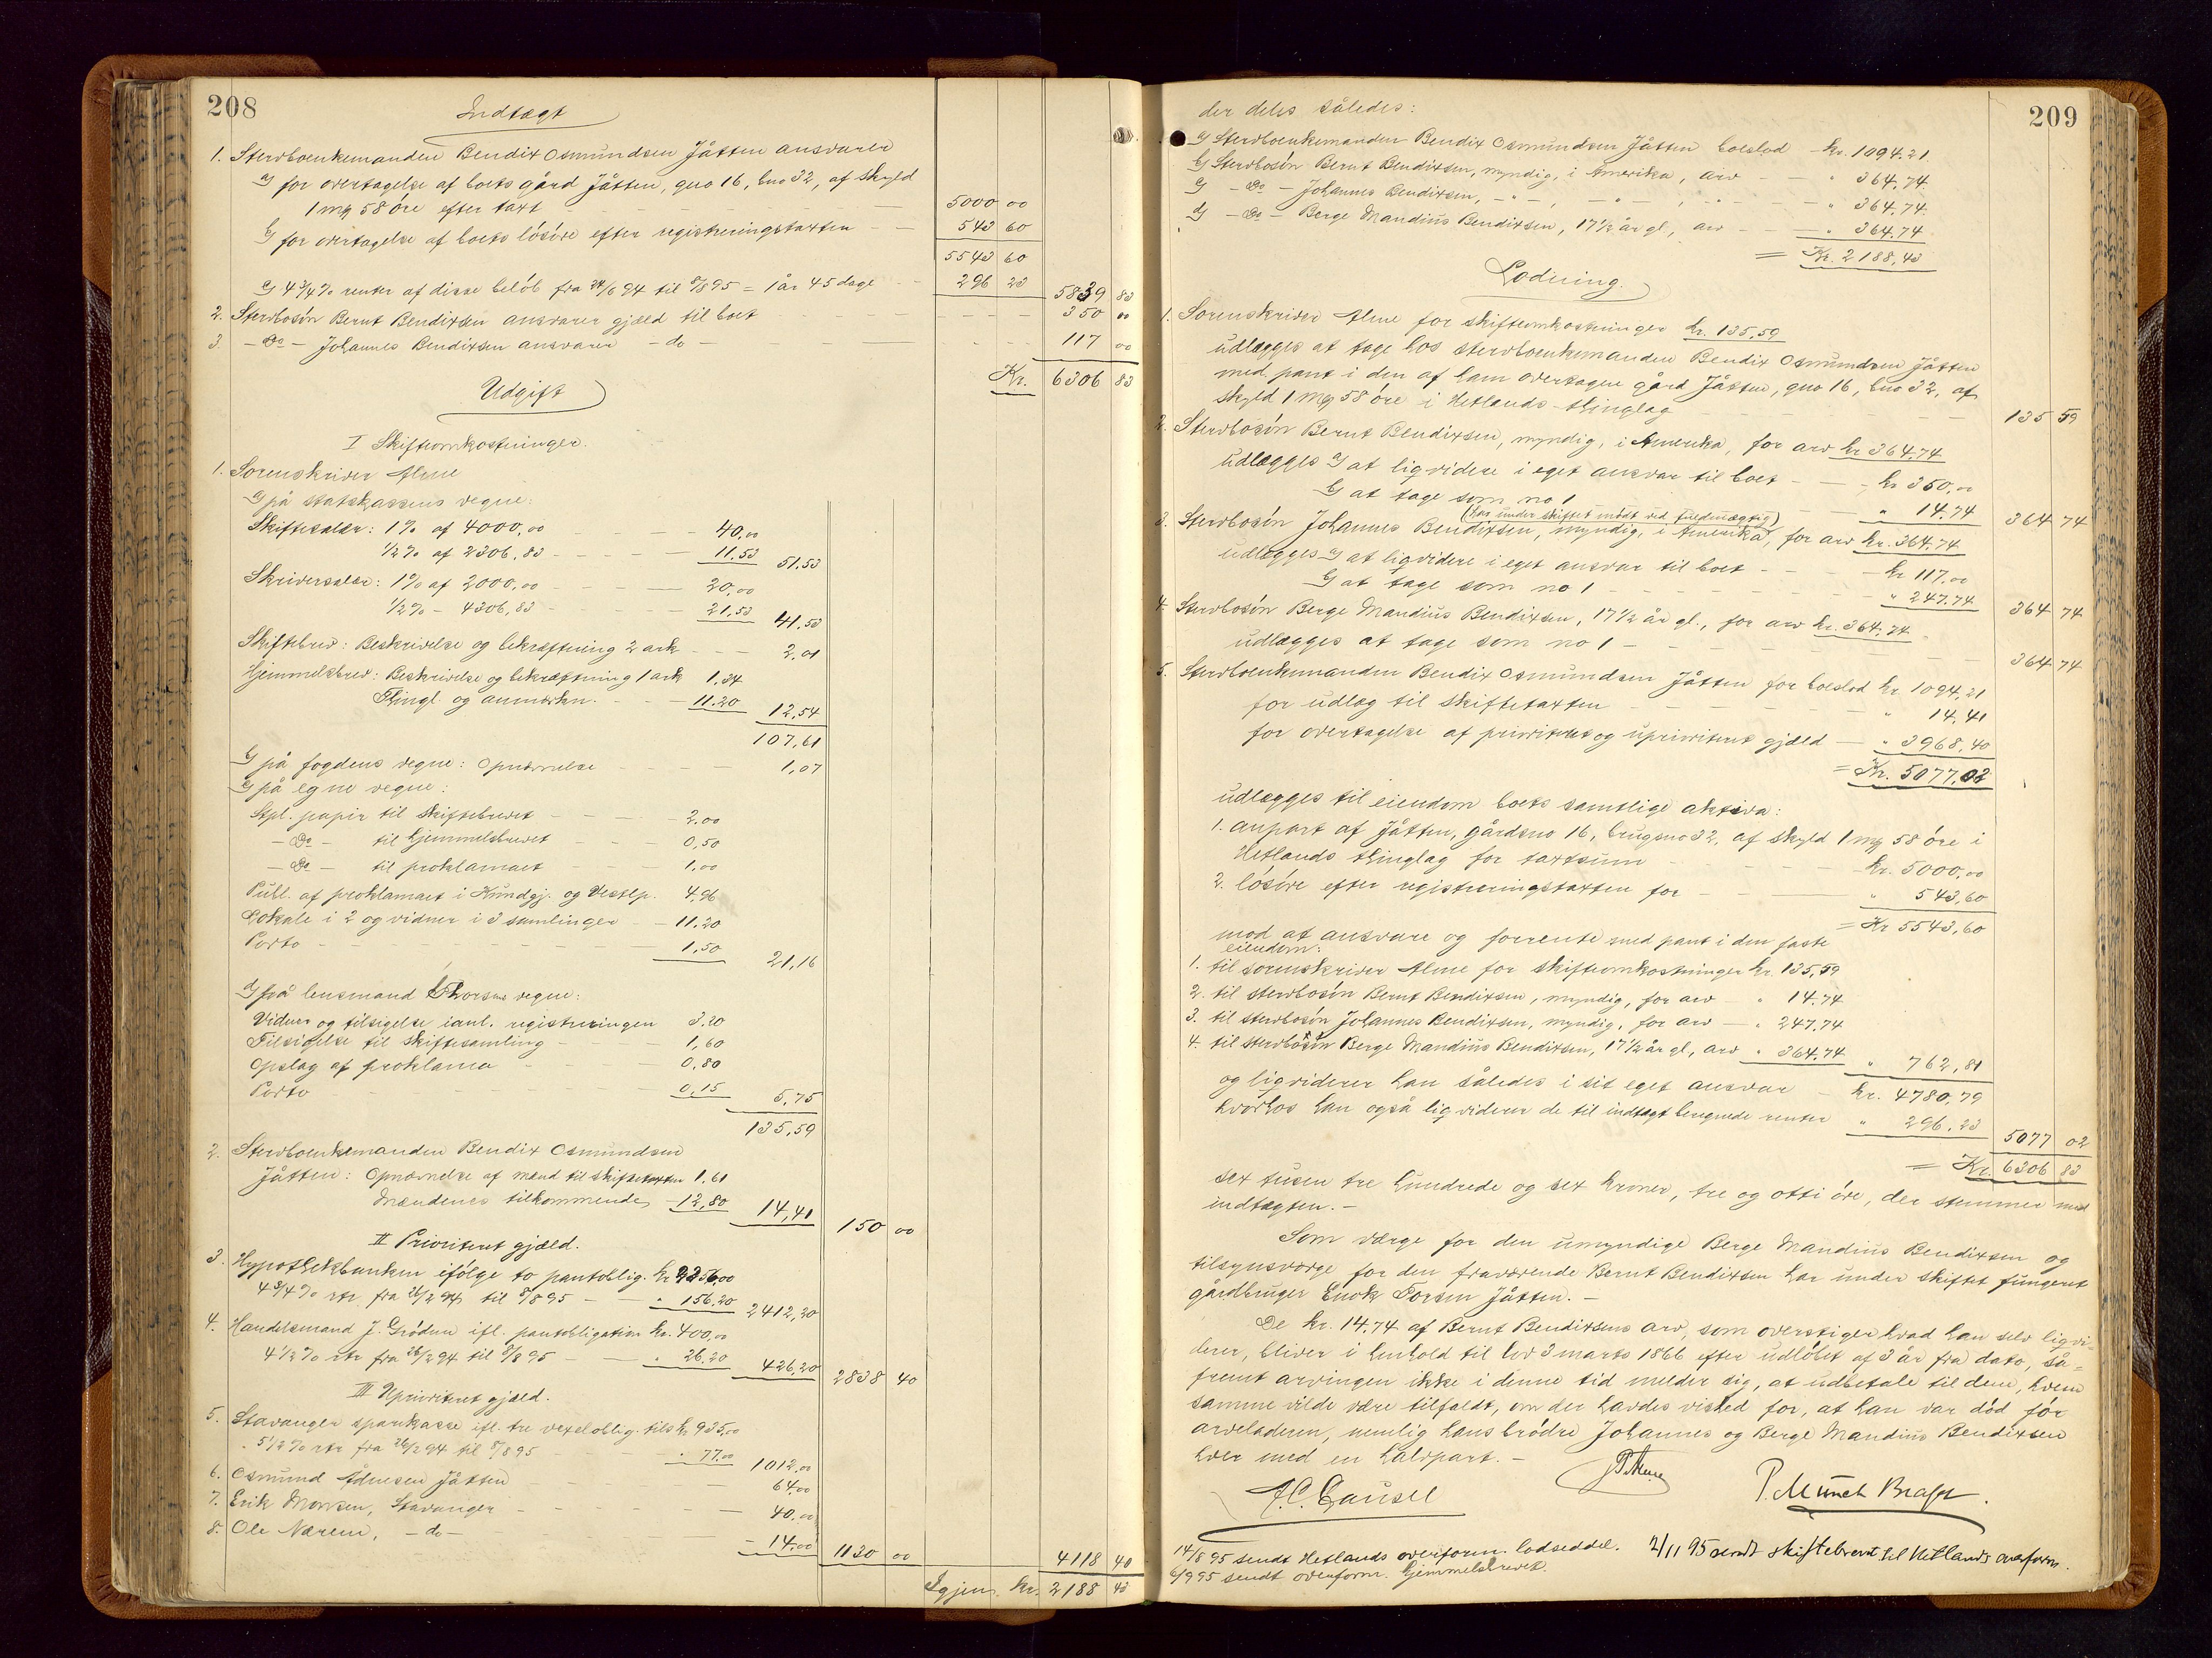 208
Indtægt
1. Stervboenkemanden Bendix Osmundsen Jåtten ansvarer
a/ for overtagelse af boets gård Jåtten, gno 16, bno 32, af skyld
1 mk 58 öre efter taxt - - - 5000 00
b/ for overtagelse af boets lösöre efter registreringstaxten - - 543 60
5543 60
c/ 4 3/4 % renter af disse belöb fra 24/6 94 til 8/8 95 = 1 år 45 dage - - 296 23 5839 83
2. Stervbosön Bernt Bendixsen ansvarer gjæld til boet - - - 350 00
3. - Do - Johannes Bendixsen ansvarer - do - - - - 117 00
Kr. 6306 83
Udgift
I Skifteomkostninger.
1. Sorenskriver Alme
a/ på statskassens vegne:
Skiftesalær: 1 % af 4000,00 - - - 40,00
1/2 % af 2306,83 - - - - 11,53 51,53
Skriversalær: 1 % af 2000,00 - - - 20,00
1/2 % - 4306,83 - - - 21,53 41,53
Skiftebrev: Beskrivelse og bekræftning 2 ark - - - 2,01
Hjemmelsbrev: Beskrivelse og bekræftning 1 ark 1,34
Thingl. og anmærkn. - - - 11,20 12,54
107,61
b/ på fogdens vegne: Opnævnelse - - - 1,07
c/ på egne vegne:
Stpl. papir til skiftebrevet - - - 2,00
- Do - til hjemmelsbrevet - - - 0,50
- Do - til proklamaet - - - 1,00
Publ. af proklamaet i Kundgj. og Vestlp. 4,96
Lokale i 2 og vidner i 3 samlinger - - 11,20
Porto - - - 1,50 21,16
d/ på lensmand Thorsens vegne:
Vidner og tilsigelse ianl. registreringen 3,20
Tilsigelse til skiftesamling - - - 1,60
Opslag af proklama - - - 0,80
Porto - - - 0,15 5,75
135,59
2. Stervboenkemanden Bendix Osmundsen
Jåtten: Opnævnelse af mænd til skiftetaxten 1,61
Mændenes tilkommende - 12,80 14,41 150 00
II Prioriteret gjæld.
3. Hypothekbanken ifölge to pantoblig. kr 2256,00
4 3/4 % rtr. fra 26/2 94 til 8/8 95 - - " 156,20 2412,20
4. Handelsmand J. Grödem ifl. pantobligation kr. 400,00
4 1/2 % rtr fra 26/2 94 til 8/8 95 - - " 26,20 426,20 2838 40
III Uprioriteret gjæld.
5. Stavanger sparekasse ifl. tre vexeloblig. tils kr 935,00
5 1/2 % rtr fra 26/2 94 til 8/8 95 - - " 77,00 1012,00
6. Osmund Ådnesen Jåtten - - - 64,00
7. Erik Monsen, Stavanger - - - 40,00
8. Ole Nærem, - do - - - - 14,00 1130 00 4118 40
Igjen kr. 2188 43
209
der deles således:
a/ Stervboenkemanden Bendix Osmundsen Jåtten boeslod - kr. 1094,21
b/ Stervbosön Bernt Bendixsen, myndig, i Amerika, arv - - " 364,74
c/ - Do - Johannes Bendixsen, - " - , - " - , " - - " 364,74
d/ - Do - Berge Mandius Bendixsen, 17 1/2 år gl, arv - - " 364,74
= Kr. 2188,43
Lodning.
1. Sorenskriver Alme for skifteomkostninger kr. 135,59
udlægges at tage hos stervboenkemanden Bendix Osmundsen Jåtten
med pant i den af ham overtagne gård Jåtten, gno 16, bno 32, af
skyld 1 mk 58 öre i Hetlands thinglag - - - 135 59
2. Stervbosön Bernt Bendixsen, myndig, i Amerika, for arv kr 364,74
udlægges a/ at ligvidere i eget ansvar til boet - - - kr 350,00
b/ at tage som no 1 - - - " 14,74 364 74
(har under skiftet mödt ved fuldmægtig)
3. Stervbosön Johannes Bendixsen, myndig, i Amerika, for arv kr. 364,74
udlægges a/ at ligvidere i eget ansvar til boet - - - kr 117,00
b/ at tage som no 1 - - - " 247,74 364 74
4. Stervbosön Berge Mandius Bendixsen, 17 1/2 år gl., for arv kr. 364,74
udlægges at tage som no 1 - - - 364 74
5. Stervboenkemanden Bendix Osmundsen Jåtten for boeslod kr. 1094,21
for udlæg til skiftetaxten - - - " 14,41
for overtagelse af prioriteret og uprioriteret gjæld - " 3968,40
= Kr. 5077,02
udlægges til eiendom boets samtlige aktiva:
1. anpart af Jåtten, gårdsno 16, brugsno 32, af skyld 1 mk 58 öre i
Hetlands thinglag for taxtsum - - - kr. 5000,00
2. lösöre efter registreringstaxten for - - - " 543,60
= Kr 5543,60
mod at ansvare og forrente med pant i den faste
eiendom:
1. til sorenskriver Alme for skifteomkostninger kr. 135,59
2. til stervbosön Bernt Bendixsen, myndig, for arv - " 14,74
3. til stervbosön Johannes Bendixsen, myndig, for arv - " 247,74
4. til stervbosön Berge Mandius Bendixsen, 17 1/2 år gl, arv " 364,74 " 762,81
og ligviderer han således i sit eget ansvar - kr. 4780,79
hvorhos han også ligviderer de til indtægt beregnede renter " 296,23 5077 02
= Kr. 6306 83
sex tusen tre hundrede og sex kroner, tre og otti öre, der stemmer med
indtægten. -
Som værge for den umyndige Berge Mandius Bendixsen og
tilsynsværge for den fraværende Bernt Bendixsen har under skiftet fungeret
gårdbruger Enok Torsen Jåtten. -
De kr. 14,74 af Bernt Bendixsens arv, som overstiger hvad han selv ligvi-
derer, bliver i henhold til lov 3 marts 1866 efter udlöbet af 3 år fra dato, så-
fremt arvingen ikke i denne tid melder sig, at udbetale til dem, hvem
samme vilde være tilfaldt, om der havdes vished for, at han var död för
arveladeren, nemlig hans brödre Johannes og Berge Mandius Bendixsen
hver med en halvpart. -
A.C. Gausel
P. Munch Brager
14/8 95 sendt Hetlands overform. lodseddel. 2/11 95 sendt skiftebrevet til Hetlands overform.
6/9 95 sendt overform. hjemmelsbrevet.